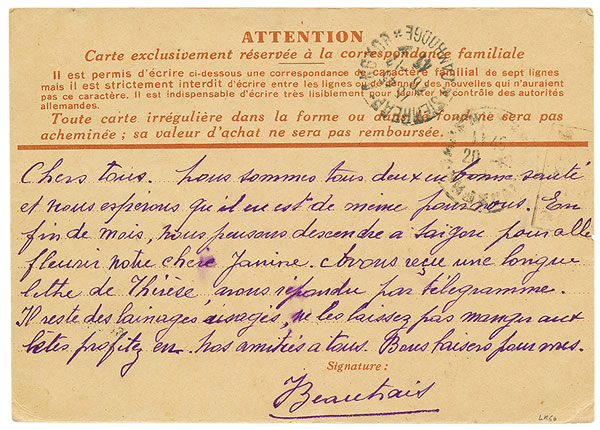 ATTENTION
Carte exclusivement réservée à la correspondance familiale
Il est permis d'écrire ci-dessous une correspondance de caractère familial de sept lignes
mais il est strictement interdit d'écrire entre les lignes ou des nouvelles qui n'auraient
pas ce caractère. Il est indispensable d'écrire très lisiblement pour faciliter le contrôle des autorités
allemandes.
Toute carte irrégulière dans la forme ou dans le fond ne sera pas
acheminée ; sa valeur d'achat ne sera pas remboursée.
SIEMREAP CAMBODGE
Chers tous. Nous sommes tous deux en bonne santé
et nous espérons qu'il en est de même pour vous. En
fin de mois, nous pensons descendre à Saïgon pour alle
fleurir notre chère Janine. Avons reçu une longue
lettre de Thérèse, avons répondu par télégramme.
Il reste des lainages usagés, ne les laissez pas manger aux
bêtes profitez en. Nos amitiés à tous. Bons baisers pour mes.
Signature :
Beautrais